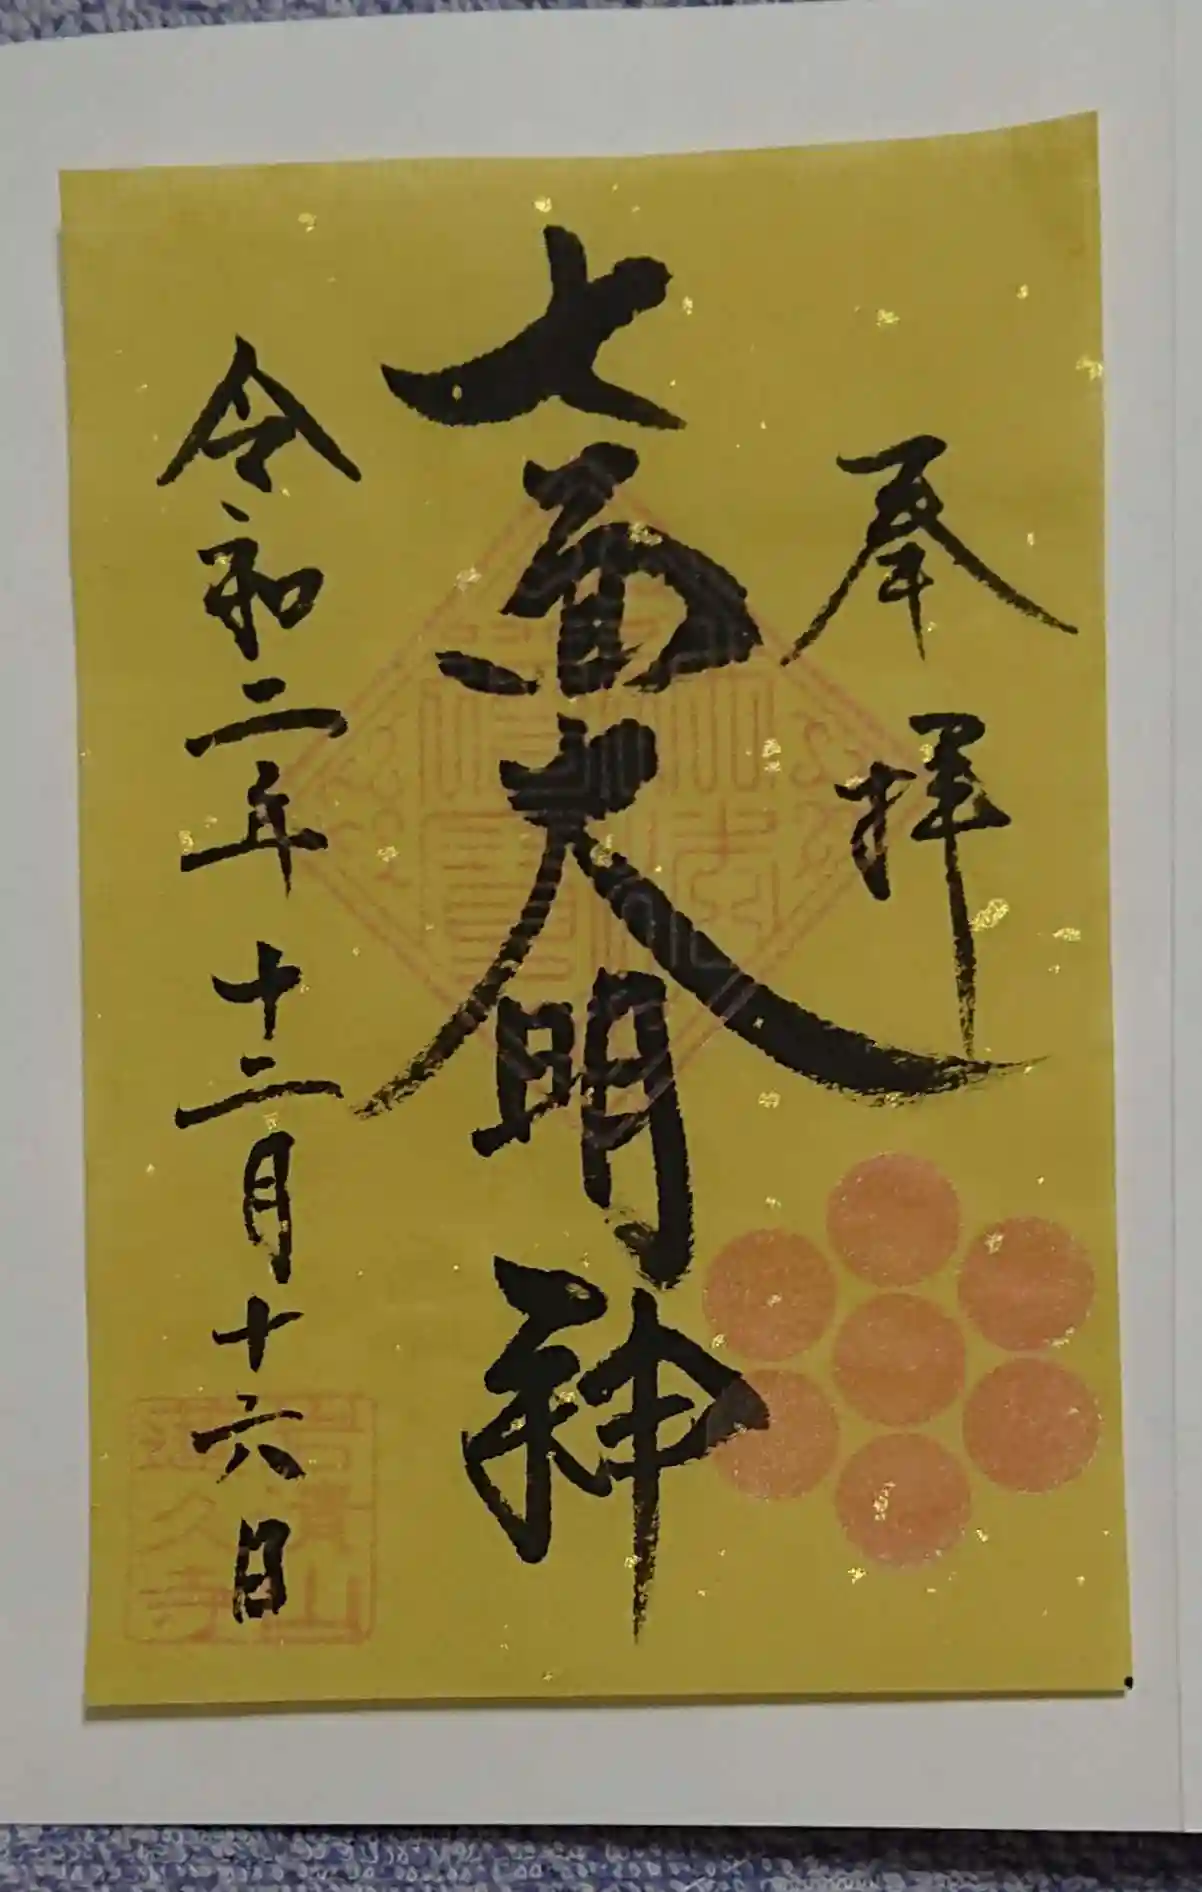 奉拝
七面大明神
令和二年十二月十六日
蓮久寺